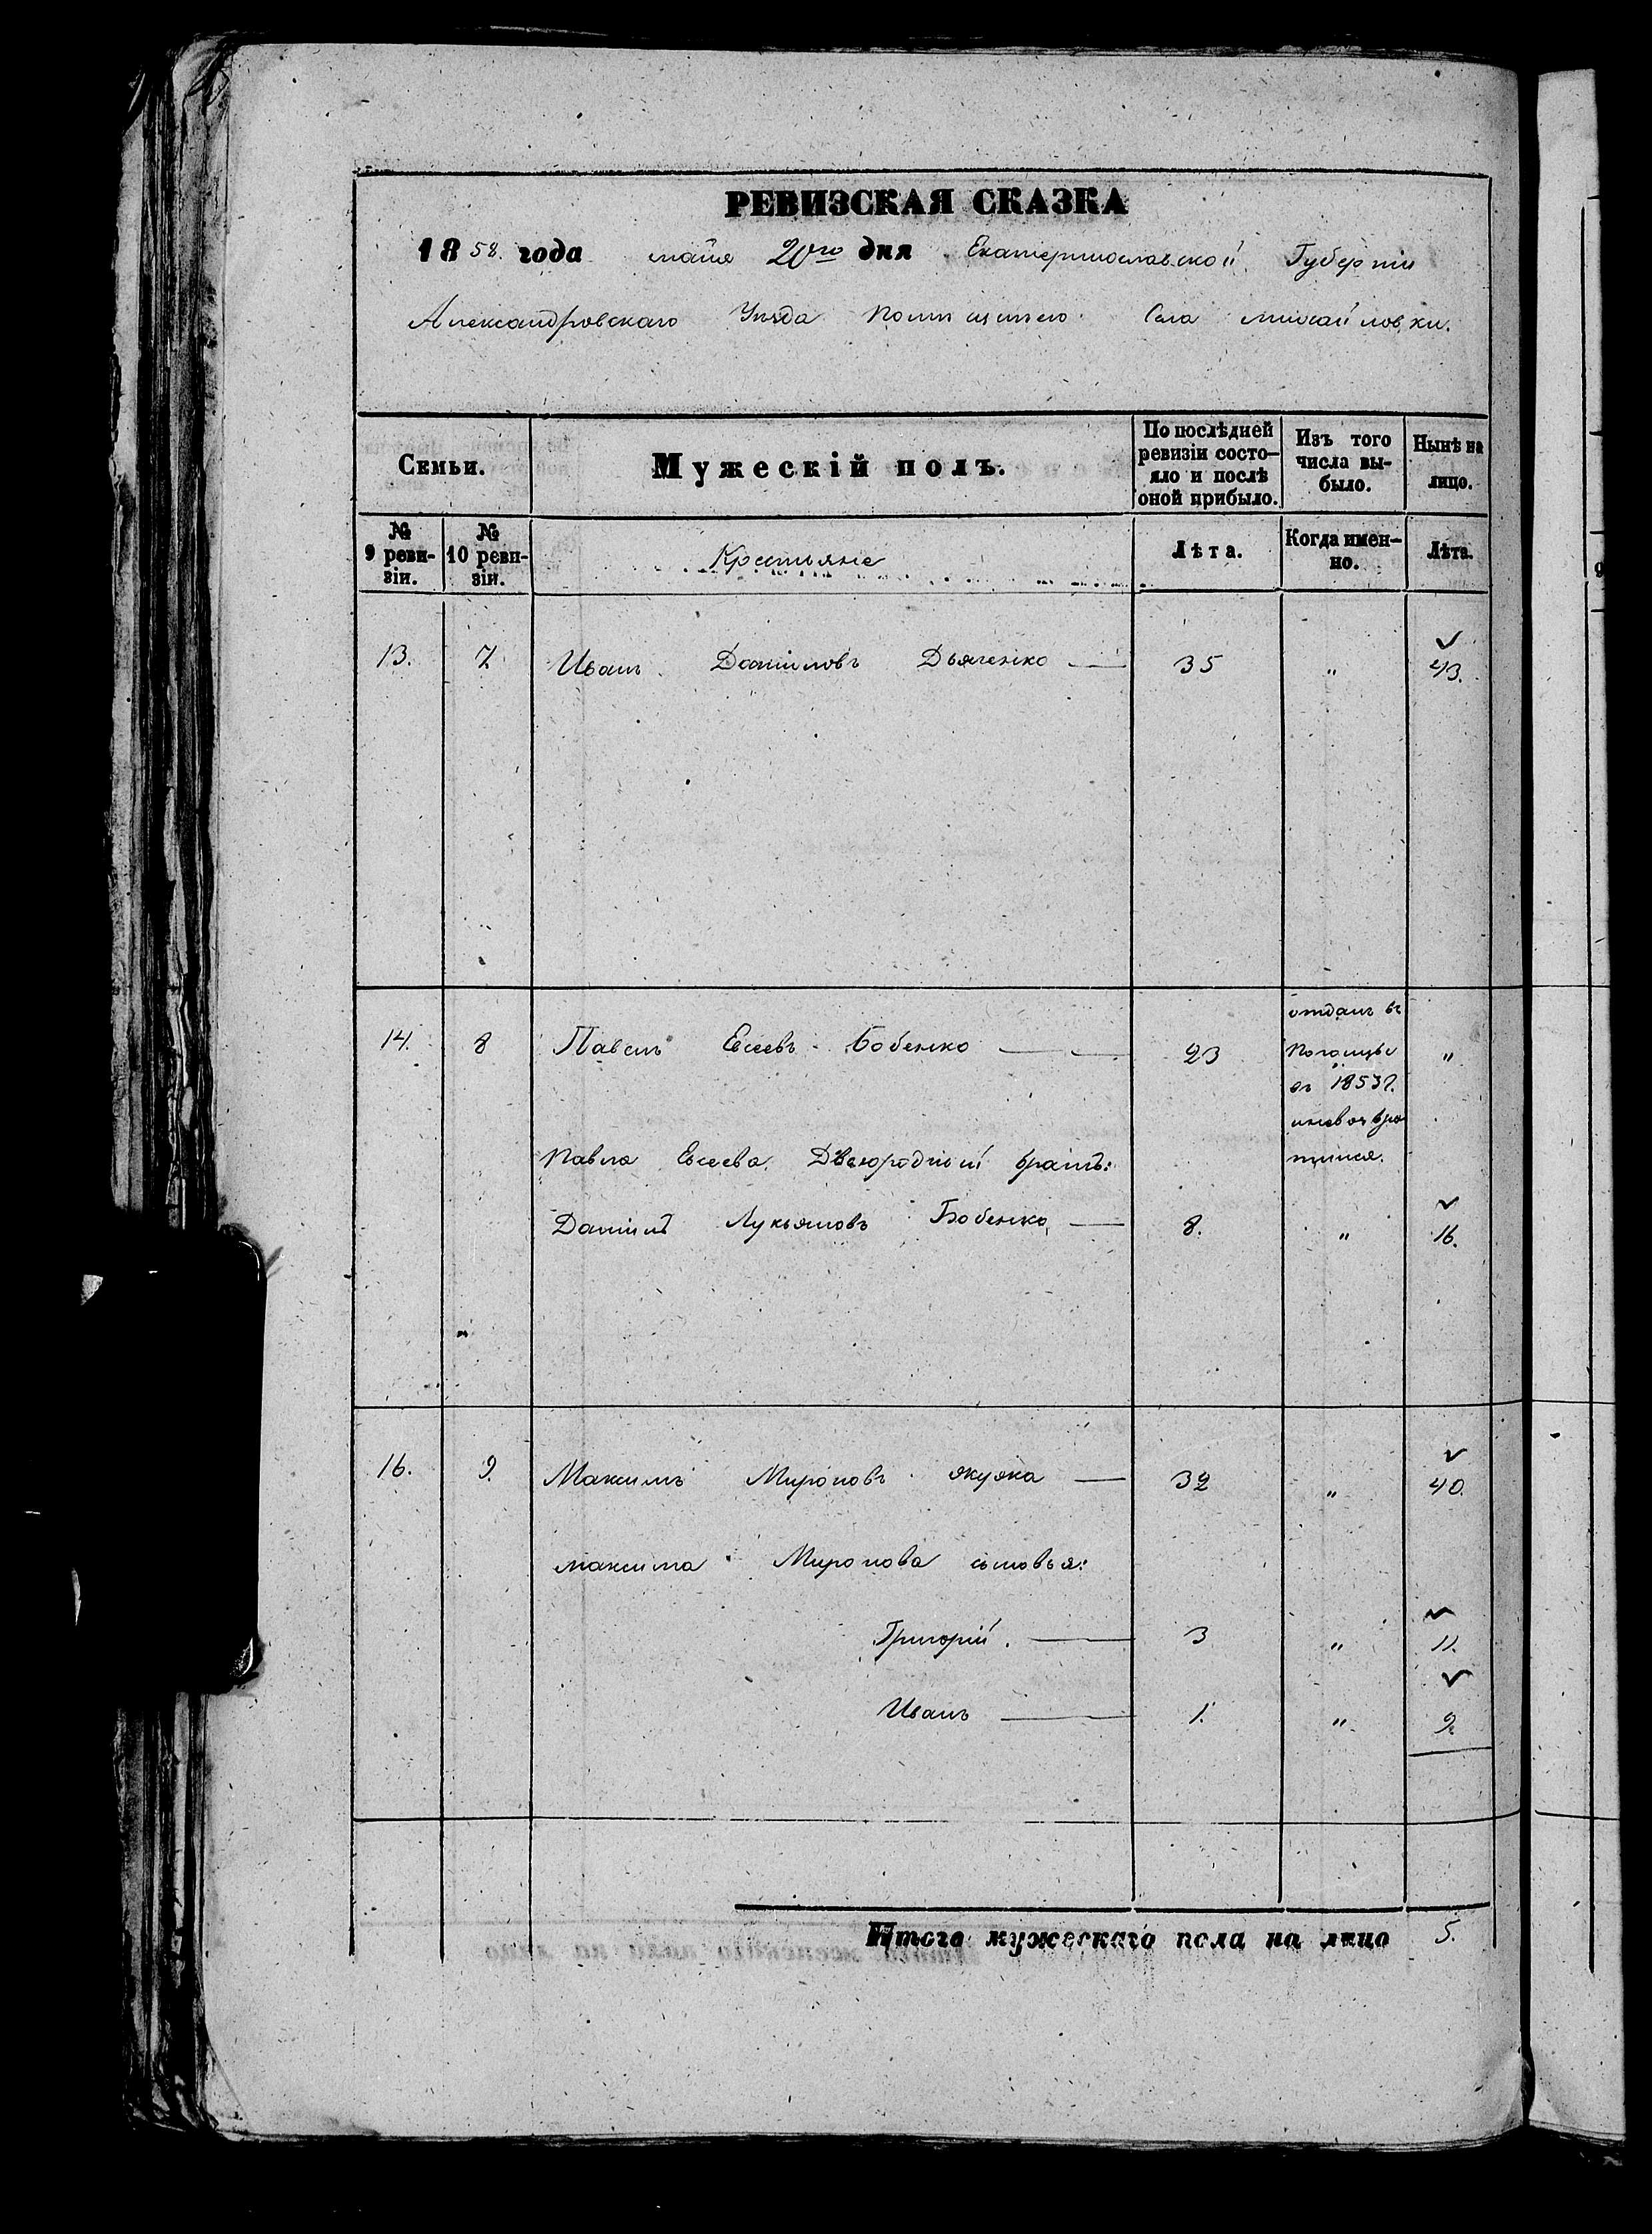 РЕВИЗСКАЯ СКАЗКА
1858. года майя 20го дня Екатеринославской Губерніи
Александровскаго Уѣзда Села михайловки.
Семьи.
Мужескій полъ.
По послѣдней ревизіи состо-
яло и послѣ оной прибыло.
Изъ того числа вы-
было.
Нынѣ на лицо.
№ 9 реви-
зіи.
№ 10 реви-
зіи.
Крестьяне
Лѣта.
Когда имен-
но.
Лѣта.
13. 7. Иванъ Даниловъ Дьяченко — 35 " 43.
14. 8 Павелъ Евсеевъ Бобенко — 23 "
отданъ въ
погонцы
въ 1853г.
инєвозвра
тился.
Павла Евсеева Двоюродный братъ:
Даниилъ Лукьяновъ Бобенко — 8. " 16.
16. 9. Максимъ Мироновъ якуяка — 32 " 40.
максима Миронова сыновья:
Григорій. — 3 " 11.
Иванъ — 1. " 9.
Итого мужескаго пола на лицо 5.